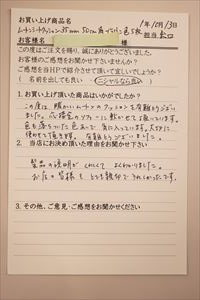 お買い上げ商品名
1年10月13日
ムートンクッション35mm 50cm角
担当
お客様名 様
この度はご注文を賜り、誠にありがとうございました。
お客様のご感想をお聞かせ下さいませんか？
ご感想を当HPで紹介させて頂いて宜しいでしょうか？
（ 名前を出しても良い イニシャルなら良い ）
1. お買い上げ頂いた商品はいかがでしたか？
この度は、暖かいムートンのクッションを有難うござい
ました。応接室のソファーに敷かせて頂っています。
色も落ちついた色あいで気に入っています。大切に
使わせて頂きます。有難うございました。
2. 当店にお決め頂いた理由をお聞かせ下さい
製品の説明がくわしくてよくわかりました。
お店の皆様もとても親切でうれしかったです。
3. その他、ご意見・ご感想をお聞かせください